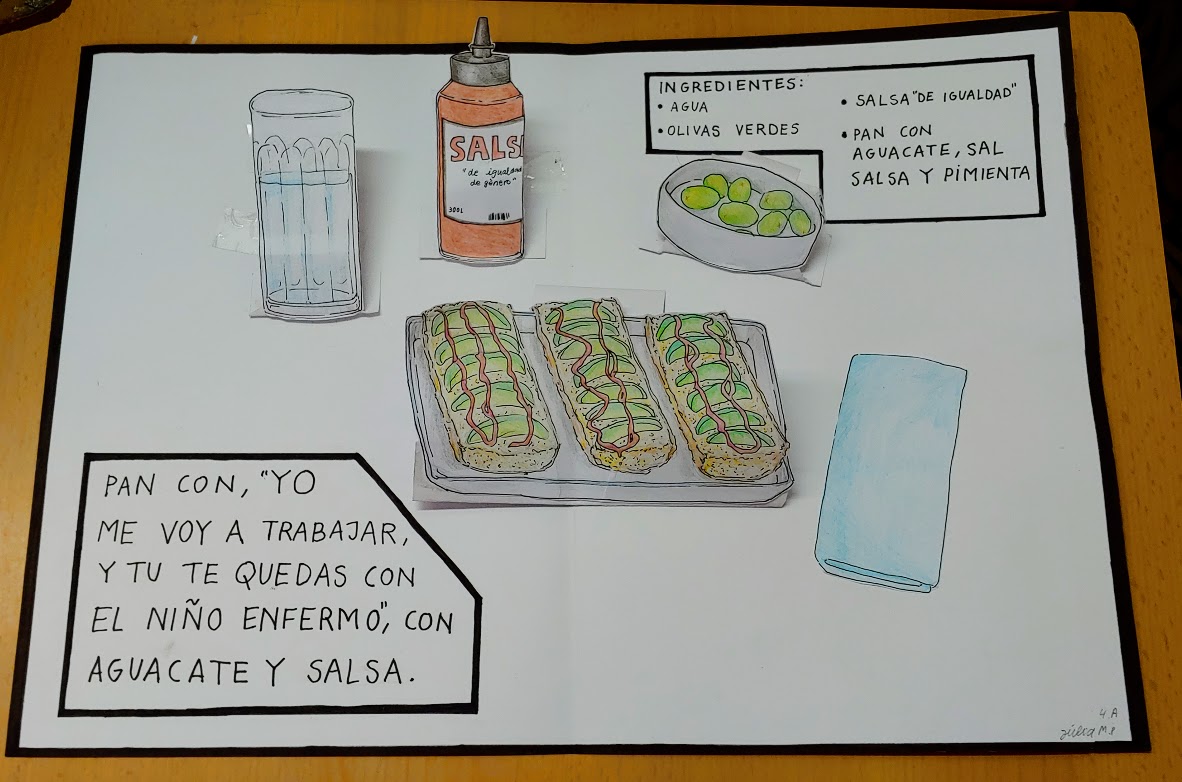 SALS
"de igualdad
de género"
300L
INGREDIENTES:
• AGUA
• OLIVAS VERDES
• SALSA "DE IGUALDAD"
• PAN CON
AGUACATE, SAL
SALSA Y PIMIENTA
PAN CON, "YO
ME VOY A TRABAJAR,
Y TU TE QUEDAS CON
EL NIÑO ENFERMO", CON
AGUACATE Y SALSA.
4.A